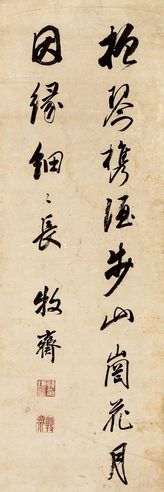 抱琴携酒步山岗花月
因缘细〻长 牧斋